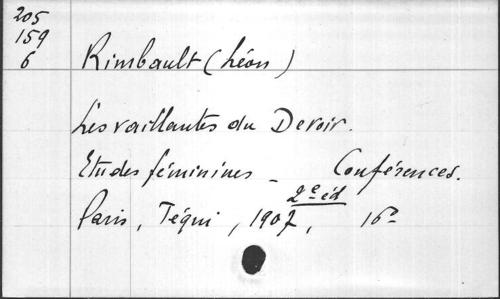 205
159
6
Rimbault (Léon)
Les vaillantes du Devoir.
Etudes féminines - Conférences.
2e éd
Paris, Téqui, 1907, 16°